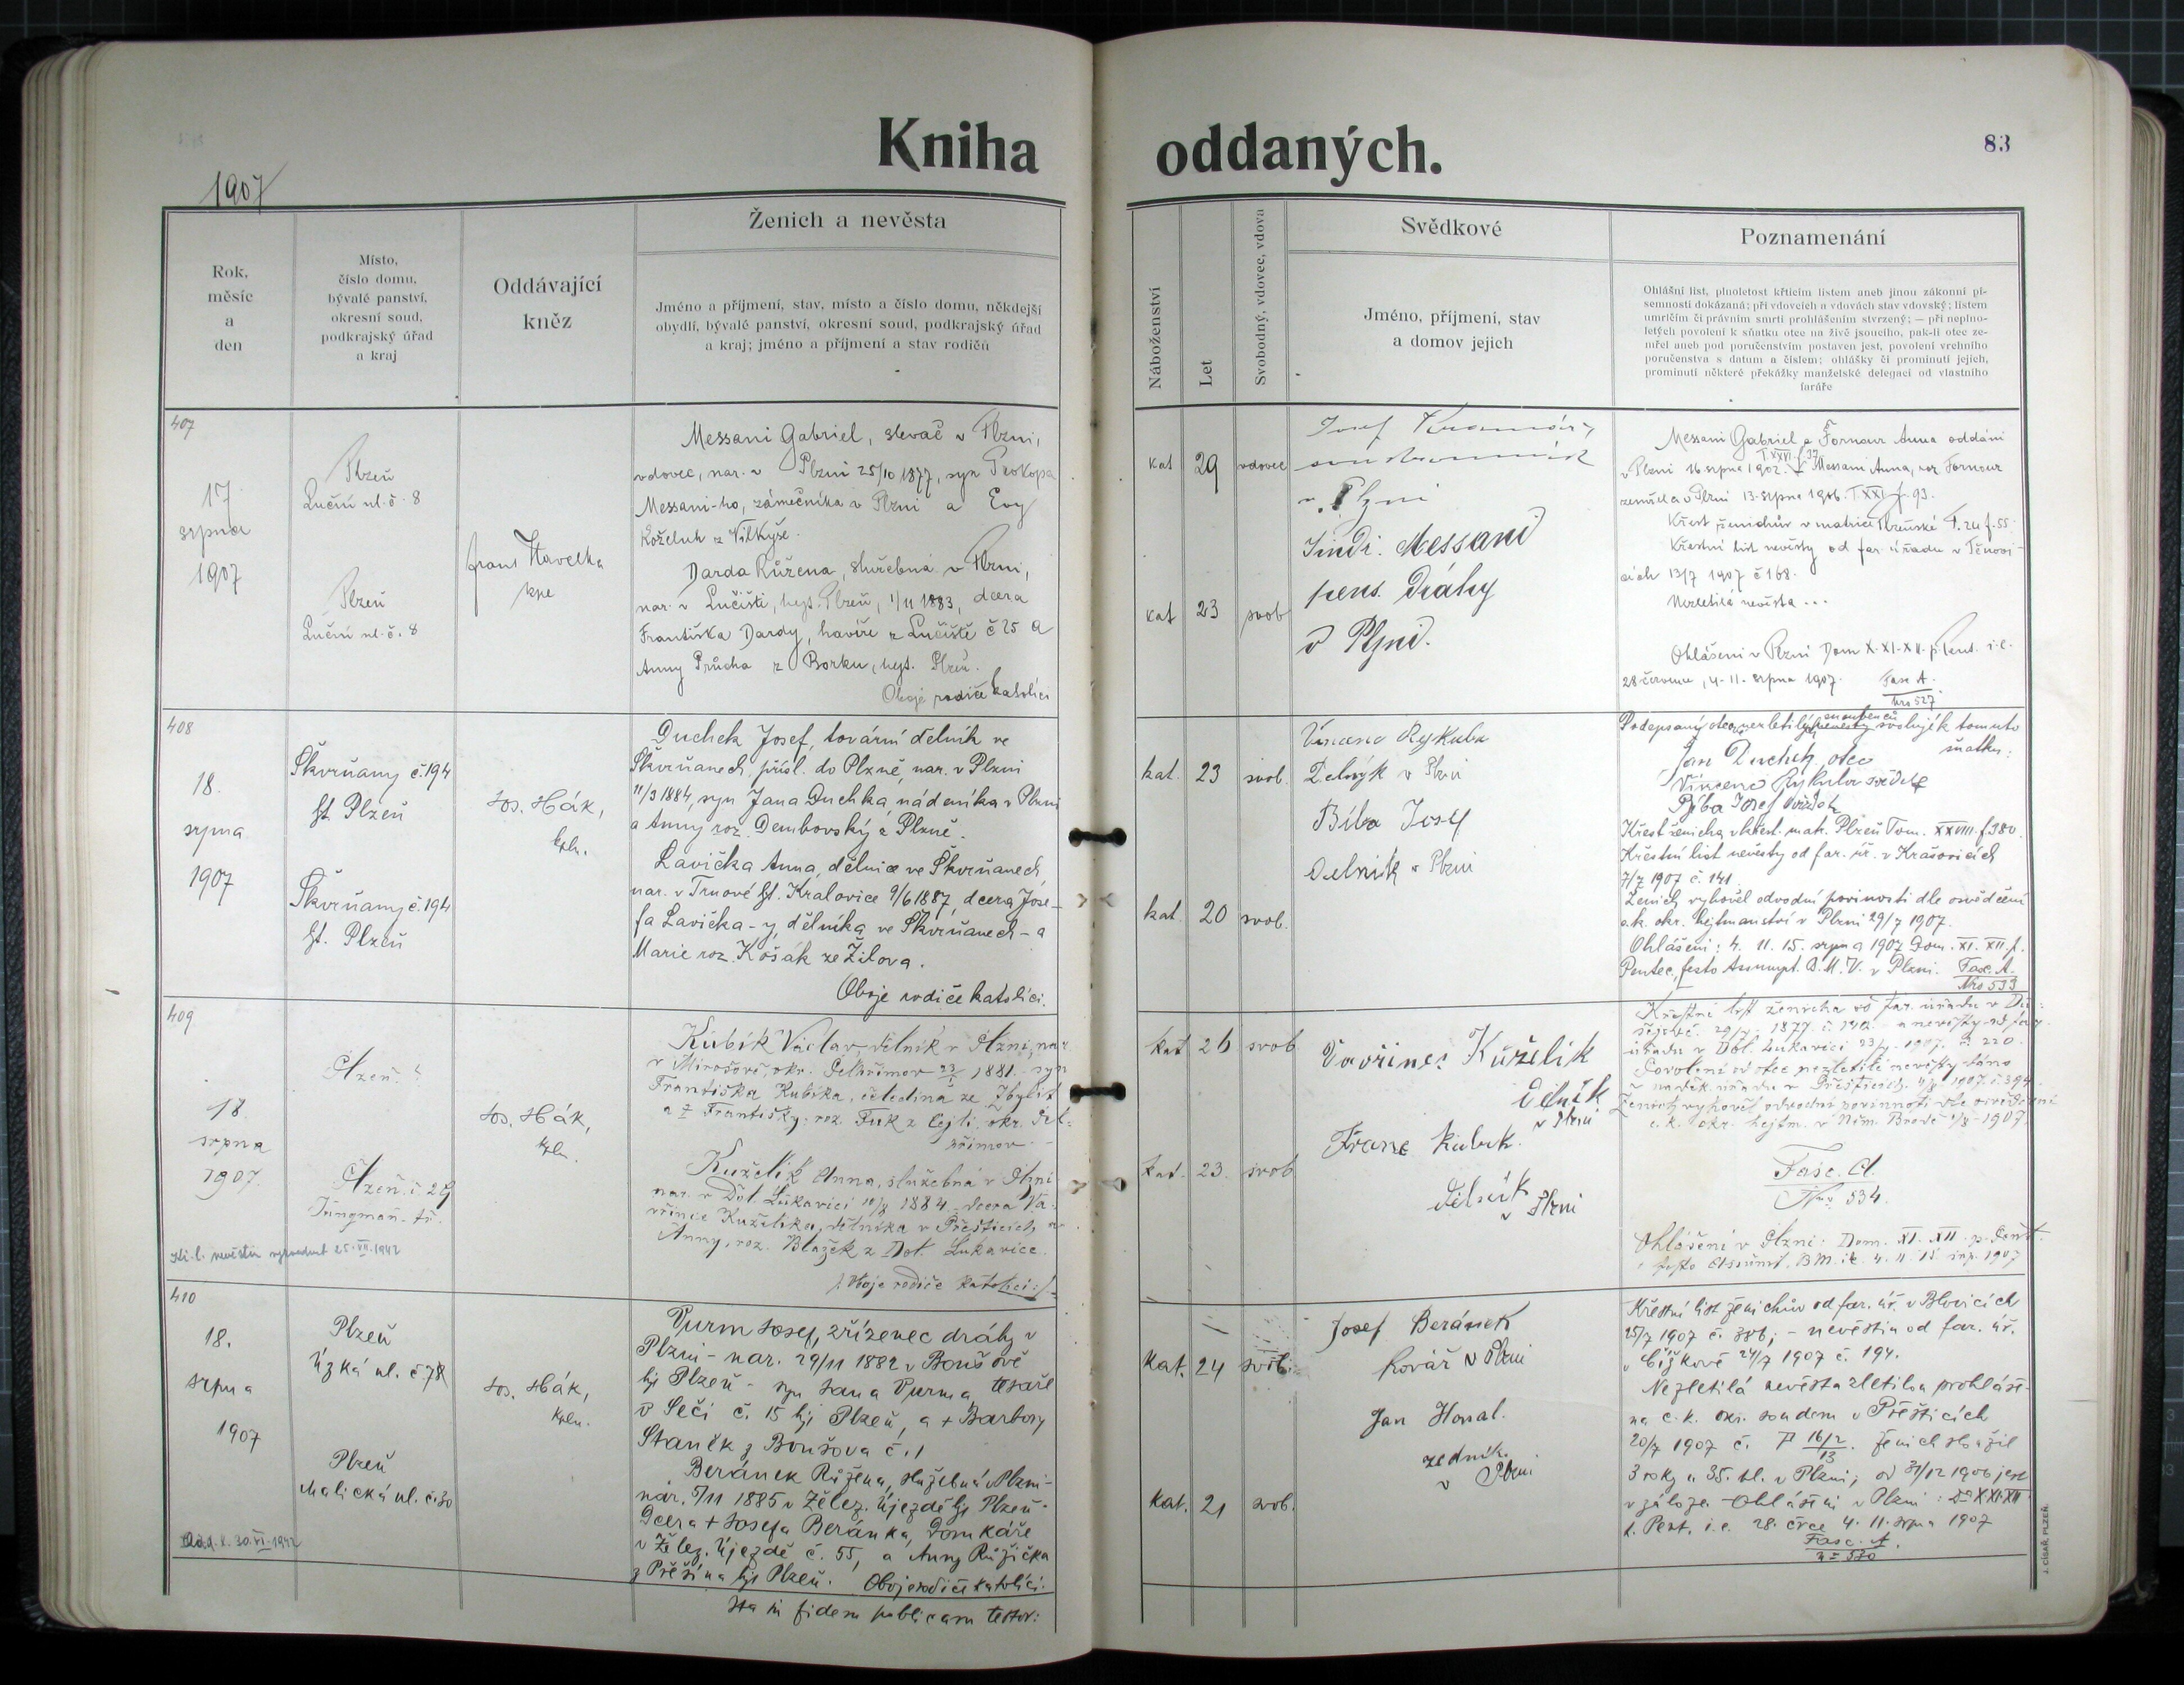 Kniha oddaných.
83
1907
Rok,
měsíc
a
den
Místo,
číslo domu,
bývalé panství,
okresní soud,
podkrajský úřad
a kraj
Oddávající
kněz
Ženich a nevěsta
Jméno a příjmení, stav, místo a číslo domu, někdejší
obydlí, bývalé panství, okresní soud, podkrajský úřad
a kraj; jméno a příjmení a stav rodičů
Náboženství
Let
Svobodný, vdovec, vdova
Svědkové
Jméno, příjmení, stav
a domov jejich
Poznamenání
Ohlášní list, plnoletost křticím listem aneb jinou zákonní pí-
semností dokázaná; při vdovcích a vdovách stav vdovský; listem
umrlčím či právním smrti prohlášením stvrzený; — při neplno-
letých povolení k sňatku otce na živě jsoucího, pak-li otec ze-
mřel aneb pod poručenstvím postaven jest, povolení vrchního
poručenstva s datum a číslem; ohlášky či prominutí jejich,
prominutí některé překážky manželské delegací od vlastního
faráře
407
17
srpna
1907
Plzeň
Luční ul. č. 8
Plzeň
Luční ul. č. 8
Havelka
Messani Gabriel, slevač v Plzni,
vdovec, nar. v Plzni 25/10 1877, syn Prokopa
Messani-ho, zámečníka v Plzni a Evy
Koželuh z Vilkýše.
Darda Růžena, služebná v Plzni,
nar. v Lučišti, hejt. Plzeň, 1/11 1883, dcera
Františka Dardy, havíře z Lučiště č 25 a
Anny Průcha z Borku, hejt. Plzeň.
Oboje rodiče katolíci
kat 29 vdovec
kat 23 svob
Josef
v Plzni
Jindř. Messani
pens. Dráhy
v Plzni.
Messani Gabriel a Fornour Anna oddáni
v Plzni 16 srpna 1902. Messani Anna, roz Fornour
zemřela v Plzni 13. srpna 1906. T XXI f. 93.
Křest ženichův v matrice Plzeňské T. 24 f. 55
Křestní list nevěsty od far. úřadu v Těnovi-
cích 13/7 1907 č 168.
Nezletilá nevěsta ...
Ohlášeni v Plzni Dom X-XI-XII p. Pent. i.e.
28 července, 4-11. srpna 1907. Fasc A.
Nro 527
408
18.
srpna
1907
Škvrňany č. 194
ht Plzeň
Škvrňany č. 194
ht. Plzeň
Jos. Hák,
kpln.
Duchek Josef, tovární dělník ve
Škvrňanech, přísl. do Plzně, nar. v Plzni
11/3 1884, syn Jana Duchka, nádeníka v Plzni
a Anny roz. Dembovský z Plzně.
Lavička Anna, dělnice ve Škvrňanech,
nar. v Trnové ht. Kralovice 9/6 1887, dcera Jose-
fa Lavička-y, dělníka ve Škvrňanech – a
Marie roz. Košák ze Žilova.
Oboje rodiče katolíci.
kat. 23 svob.
kat. 20 svob.
Vincenc Rykula
Dělnyk v Plzni
Biba Josef
Delnik v Plzni
Podepsaný otec nezletilých snoubenců svoluje k tomuto
sňatku:
Jan Duchek, otec
Vincenc Rykula svědek
Josef svědek
Křest ženicha v křest. matr. Plzeň Tom. XXVIII. f 380.
Křestní list nevěsty od far. úř. v Krašovicích
7/7 1907 č. 141.
Ženich vyhověl odvodní povinnosti dle osvědčení
c. k. okr. hejtmanství v Plzni 29/7 1907.
Ohlášeni: 4. 11. 15. srpna 1907 Dom. XI. XII. p.
Pentec, festo Assumpt. B. M. V. v Plzni. Fasc. A.
Nro 533
409
18.
srpna
1907.
Plzeň
Plzeň č. 29
Jungman-tř.
25. VII. 1942
Jos. Hák,
kpln.
Kubík Václav, dělník v Plzni, nar.
v Mirošově, okr. Pelhřimov 23/1 1881. syn
Františka Kubíka, čeledína ze
a Františky, roz. Fuk z okr. Pel-
hřimov
Kuželík Anna, služebná v Plzni
nar. v Dol. Lukavici 10/8 1884 dcera Va-
vřince Kuželíka, dělníka v Přešticích a
Anny, roz. Blažek z Dol. Lukavice.
Oboje rodiče katolíci
kat 26 svob
kat. 23 svob
Vavřinec Kuželik
Dělník
v Plzni
Franc Kubik.
Dělník
v Plzni
Křestní list ženicha od far. úřadu v
úřadu v Dol. Lukavici 23/7. 1907. č. 220.
Povolení od otce nezletilé nevěsty dáno
v Přešticích 1907.
Ženich vyhověl odvodní povinnosti dle osvědčení
c. k. okr. hejtm. v Něm. Brodě 1/8 1907.
Fasc. A.
Nro. 534.
Ohlášeni v Plzni: Dom. XI. XII. p. Pent.
festo Assumt. BM. i.e. 4. 11. 15 srp. 1907
410
18.
srpna
1907
Plzeň
Úzká ul. č 78
Plzeň
Malická ul. č. 30
30. VI. 1942
Jos. Hák,
kpln.
Vurm Josef, zřízenec dráhy v
Plzni – nar. 29/11 1882 v Boušově
hj Plzeň – syn Jana Vurma, tesaře
v Seči č. 15 hj Plzeň, a + Barbory
Staněk z Boušova č. 1
Beránek Růžena, služebná v Plzni –
nar. 5/11 1885 v Želez. Újezdě hj Plzeň –
Dcera + Josefa Beránka, domkáře
v Želez. Újezdě č. 55, a Anny Růžička
z Přešína hj Plzeň. Oboje rodiče katolíci.
Ita in fidem publicam testor:
kat. 24 svob.
kat. 21 svob.
Josef Beránek
kovář v Plzni
Jan
zedník
v Plzni
Křestní list ženichův od far. úř. v Blovicích
25/7 1907 č. – nevěstin od far. úř.
v Čížkově 24/7 1907 č. 194.
Nezletilá nevěsta zletilou prohláše-
na c. k. okr. soudem v Přešticích
20/7 1907 č. P 16/2 13. ženich sloužil
3 roky u 35. pl. v Plzni; od 31/12 1906 jest
v záloze – Ohlášeni v Plzni: X XI XII
p. Pent. i. e. 28. črce 4. 11. srpna 1907
Fasc. A.
530
J. CÍSAŘ, PLZEŇ.